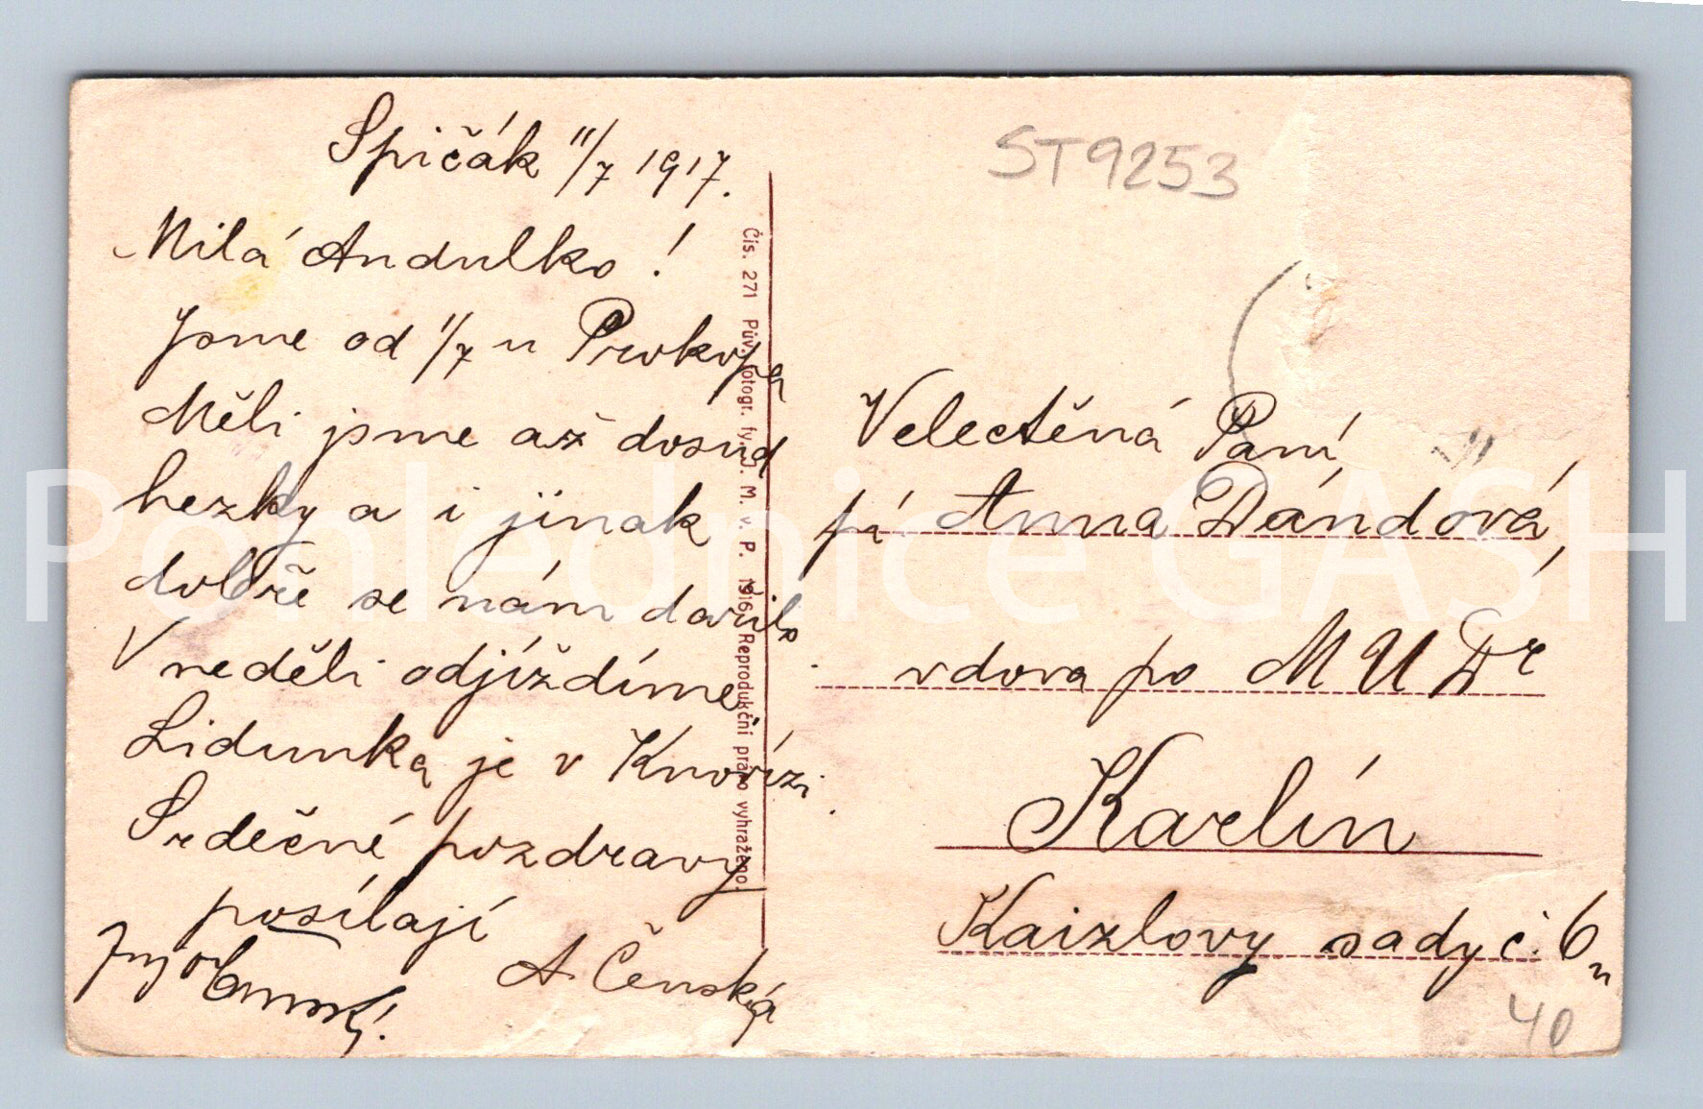 Spičák 11/7 1917.
Milá Andulko!
Jsme od 1/7 u Prokopa
Měli jsme až dosud
hezky a i jinak
dobře se nám dařilo.
V neděli odjíždíme
Lidunka je v Knovízi.
Srdečné pozdravy
posílají
A. Čenská
Čís. 271 Pův. fotogr. fy. J. M. v. P. 1916. Reprodukční právo vyhraženo.
ST9253
Velectěná Paní
pí Anna Dándová,
vdova po MUDr
Karlín
Kaizlovy sady č. 6
40
Pohlednice GASH